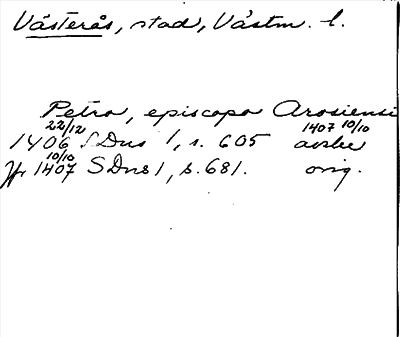 Västerås, stad, Västm. l.
Petro, episcopo Arosiensi
22/12 1407 10/10
1406 SDns 1, s. 605 avskr
10/10
Jfr 1407 SDns 1, s. 681. orig.